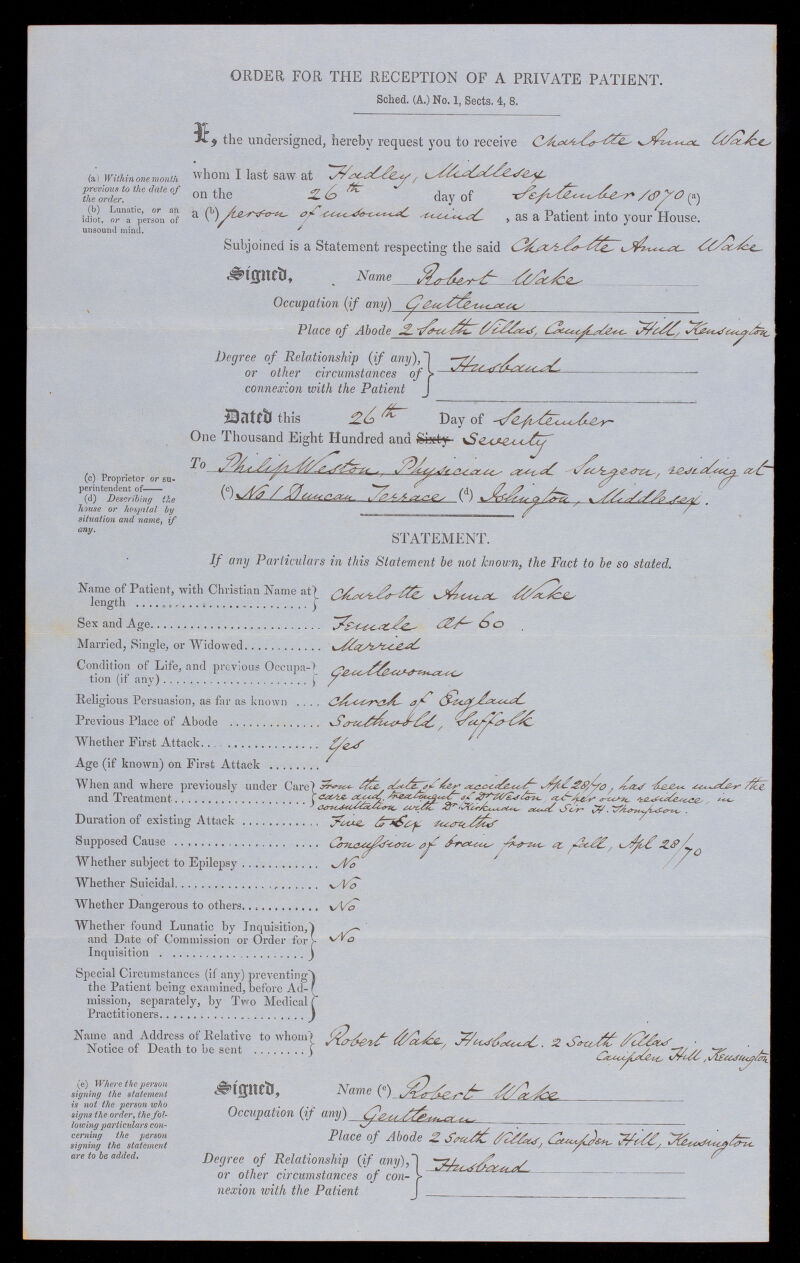 ORDER FOR THE RECEPTION OF A PRIVATE PATIENT.
Sched. (A.) No. 1, Sects. 4, 8.
I, the undersigned, hereby request you to receive Charlotte Anna Wake
whom I last saw at Hadley, Middlesex
on the 26th day of September 1870 (a)
a (b) person of unsound mind, as a Patient into your House.
(a) Within one month
previous to the date of
the order.
(b) Lunatic, or an
idiot, or a person of
unsound mind.
Subjoined is a Statement respecting the said Charlotte Anna Wake
Signed, Name Robert Wake
Occupation (if any) Gentleman
Place of Abode 2 South Villas, Campden Hill, Kensington
Degree of Relationship (if any),
or other circumstances of
connexion with the Patient
Husband
Dated this 26th Day of September
One Thousand Eight Hundred and Sixty Seventy
To Philip Weston, Physician and Surgeon, residing at
(c) No 1 Duncan Terrace (d) Islington, Middlesex.
(c) Proprietor or su-
perintendent of——
(d) Describing the
house or hospital by
situation and name, if
any.
STATEMENT.
If any Particulars in this Statement be not known, the Fact to be so stated.
Name of Patient, with Christian Name at
length Charlotte Anna Wake
Sex and Age Female æt 60.
Married, Single, or Widowed Married
Condition of Life, and previous Occupa-
tion (if any) Gentlewoman
Religious Persuasion, as far as known Church of England
Previous Place of Abode Southwold, Suffolk
Whether First Attack Yes
Age (if known) on First Attack
When and where previously under Care
and Treatment
From the date of her accident, Apl 28/70, has been under the
care and treatment of Dr Weston at her own residence, in
consultation with Dr Kirkman and Sir H. Thompson.
Duration of existing Attack Five to Six months
Supposed Cause Concussion of brain from a fall, Apl 28/70
Whether subject to Epilepsy No
Whether Suicidal No
Whether Dangerous to others No
Whether found Lunatic by Inquisition,
and Date of Commission or Order for
Inquisition No
Special Circumstances (if any) preventing
the Patient being examined, before Ad-
mission, separately, by Two Medical
Practitioners
Name and Address of Relative to whom
Notice of Death to be sent
Robert Wake, Husband. 2 South Villas
Campden Hill, Kensington
(e) Where the person
signing the statement
is not the person who
signs the order, the fol-
lowing particulars con-
cerning the person
signing the statement
are to be added.
Signed, Name (e) Robert Wake
Occupation (if any) Gentleman
Place of Abode 2 South Villas, Campden Hill, Kensington
Degree of Relationship (if any),
or other circumstances of con-
nexion with the Patient
Husband